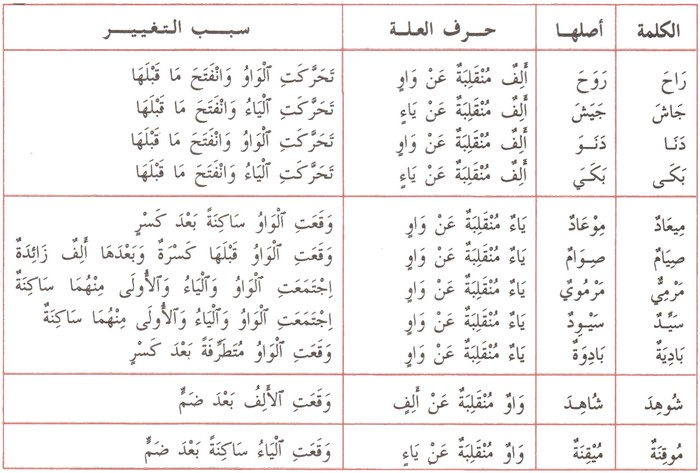 الكلمة أصلهـا حـرف العلـة سبـب التـغييـر
رَاحَ رَوَحَ أَلِفٌ مُنْقَلِبَةٌ عَنْ وَاوٍ تَحَرَّكَتِ ٱلْوَاوُ وَٱنْفَتَحَ مَا قَبْلَهَا
جَاشَ جَيَشَ أَلِفٌ مُنْقَلِبَةٌ عَنْ يَاءٍ تَحَرَّكَتِ ٱلْيَاءُ وَٱنْفَتَحَ مَا قَبْلَهَا
دَنَـا دَنَـوَ أَلِفٌ مُنْقَلِبَةٌ عَنْ وَاوٍ تَحَرَّكَتِ ٱلْوَاوُ وَٱنْفَتَحَ مَا قَبْلَهَا
بَكَى بَكَيَ أَلِفٌ مُنْقَلِبَةٌ عَنْ يَاءٍ تَحَرَّكَتِ ٱلْيَاءُ وَٱنْفَتَحَ مَا قَبْلَهَا
مِيعَادٌ مِوْعَادٌ يَاءٌ مُنْقَلِبَةٌ عَنْ وَاوٍ وَقَعَتِ ٱلْوَاوُ سَاكِنَةً بَعْدَ كَسْرٍ
صِيَامٌ صِـوَامٌ يَاءٌ مُنْقَلِبَةٌ عَنْ وَاوٍ وَقَعَتِ ٱلْوَاوُ قَبْلَهَا كَسْرَةٌ وَبَعْدَهَا أَلِفٌ زَائِدَةٌ
مَرْمِيٌّ مَرْمُويٌ يَاءٌ مُنْقَلِبَةٌ عَنْ وَاوٍ اِجْتَمَعَتِ ٱلْوَاوُ وَٱلْيَاءُ وَٱلْأُولَى مِنْهُمَا سَاكِنَةٌ
سَيِّـدٌ سَيْـوِدٌ يَاءٌ مُنْقَلِبَةٌ عَنْ وَاوٍ اِجْتَمَعَتِ ٱلْوَاوُ وَٱلْيَاءُ وَٱلْأُولَى مِنْهُمَا سَاكِنَةٌ
بَادِيَةٌ بَادِوَةٌ يَاءٌ مُنْقَلِبَةٌ عَنْ وَاوٍ وَقَعَتِ ٱلْوَاوُ مُتَطَرِّفَةً بَعْدَ كَسْرٍ
شُوهِدَ شُاهِـدَ وَاوٌ مُنْقَلِبَةٌ عَنْ أَلِفٍ وَقَعَتِ ٱلأَلِفُ بَعْدَ ضَمٍّ
مُوقِنَةٌ مُيْقِنَةٌ وَاوٌ مُنْقَلِبَةٌ عَنْ يَاءٍ وَقَعَتِ ٱلْيَاءُ سَاكِنَةً بَعْدَ ضَمٍّ